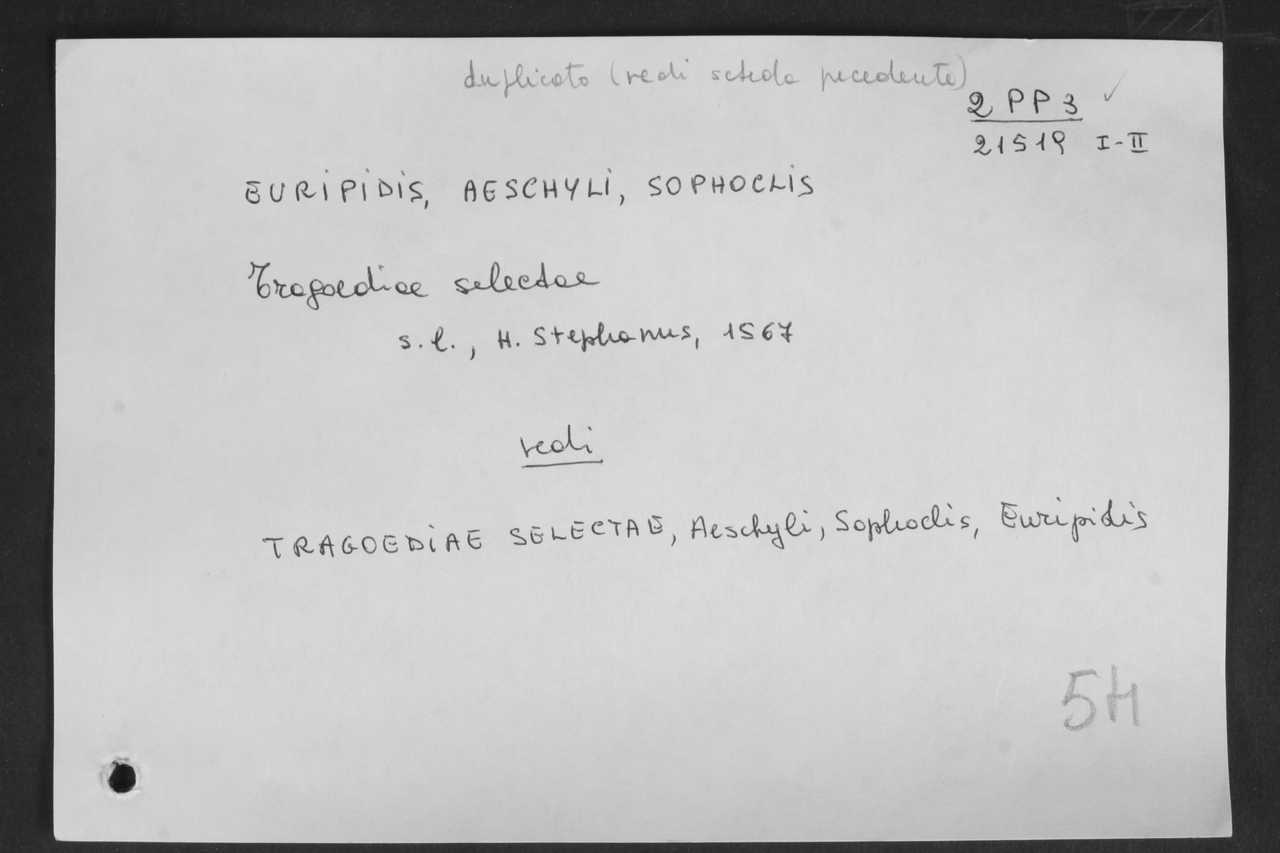 duplicato (vedi scheda precedente)
2 PP 3 ✓
21519 I-II
EURIPIDIS, AESCHYLI, SOPHOCLIS
Tragoediae selectae
s.l., H. Stephanus, 1567
vedi
TRAGOEDIAE SELECTAE, Aeschyli, Sophoclis, Euripidis
54